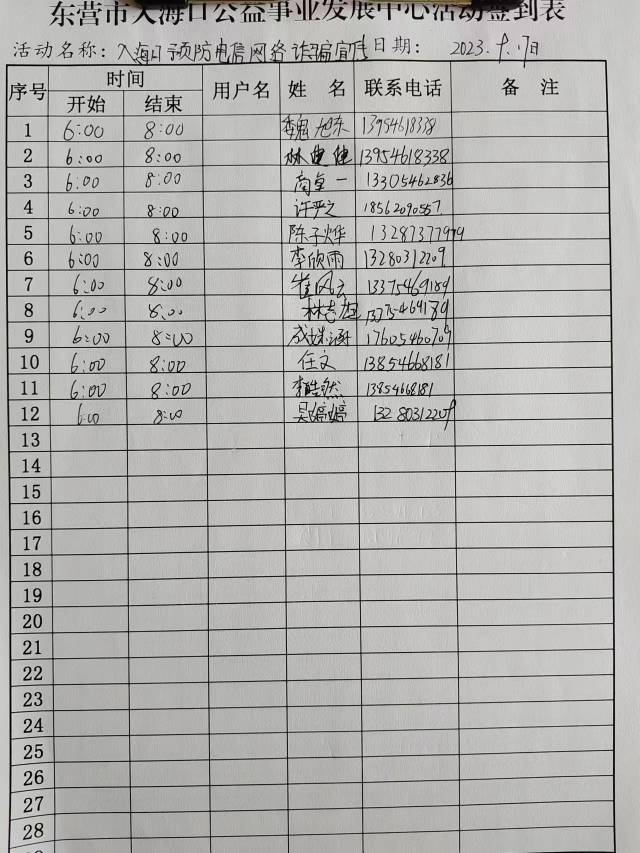 东营市入海口公益事业发展中心活动签到表
活动名称：入海口预防电信网络诈骗宣传 日期： 2023.9.17日
序号 时间 用户名 姓 名 联系电话 备 注
开始 结束
1 6:00 8:00 魏旭东 13954618338
2 6:00 8:00 林 13954618338
3 6:00 8:00 商卓一 13305462836
4 6:00 8:00 许严之 18562090557
5 6:00 8:00 陈子烨 13287377979
6 6:00 8:00 李欣雨 13280312209
7 6:00 8:00 崔风云 13375469189
8 6:00 8:00 林志旭 13375469189
9 6:00 8:00 成姝涵 17605460709
10 6:00 8:00 任文 13854668181
11 6:00 8:00 李皓然 13854668181
12 6:00 8:00 吴婷婷 13280312209
13
14
15
16
17
18
19
20
21
22
23
24
25
26
27
28